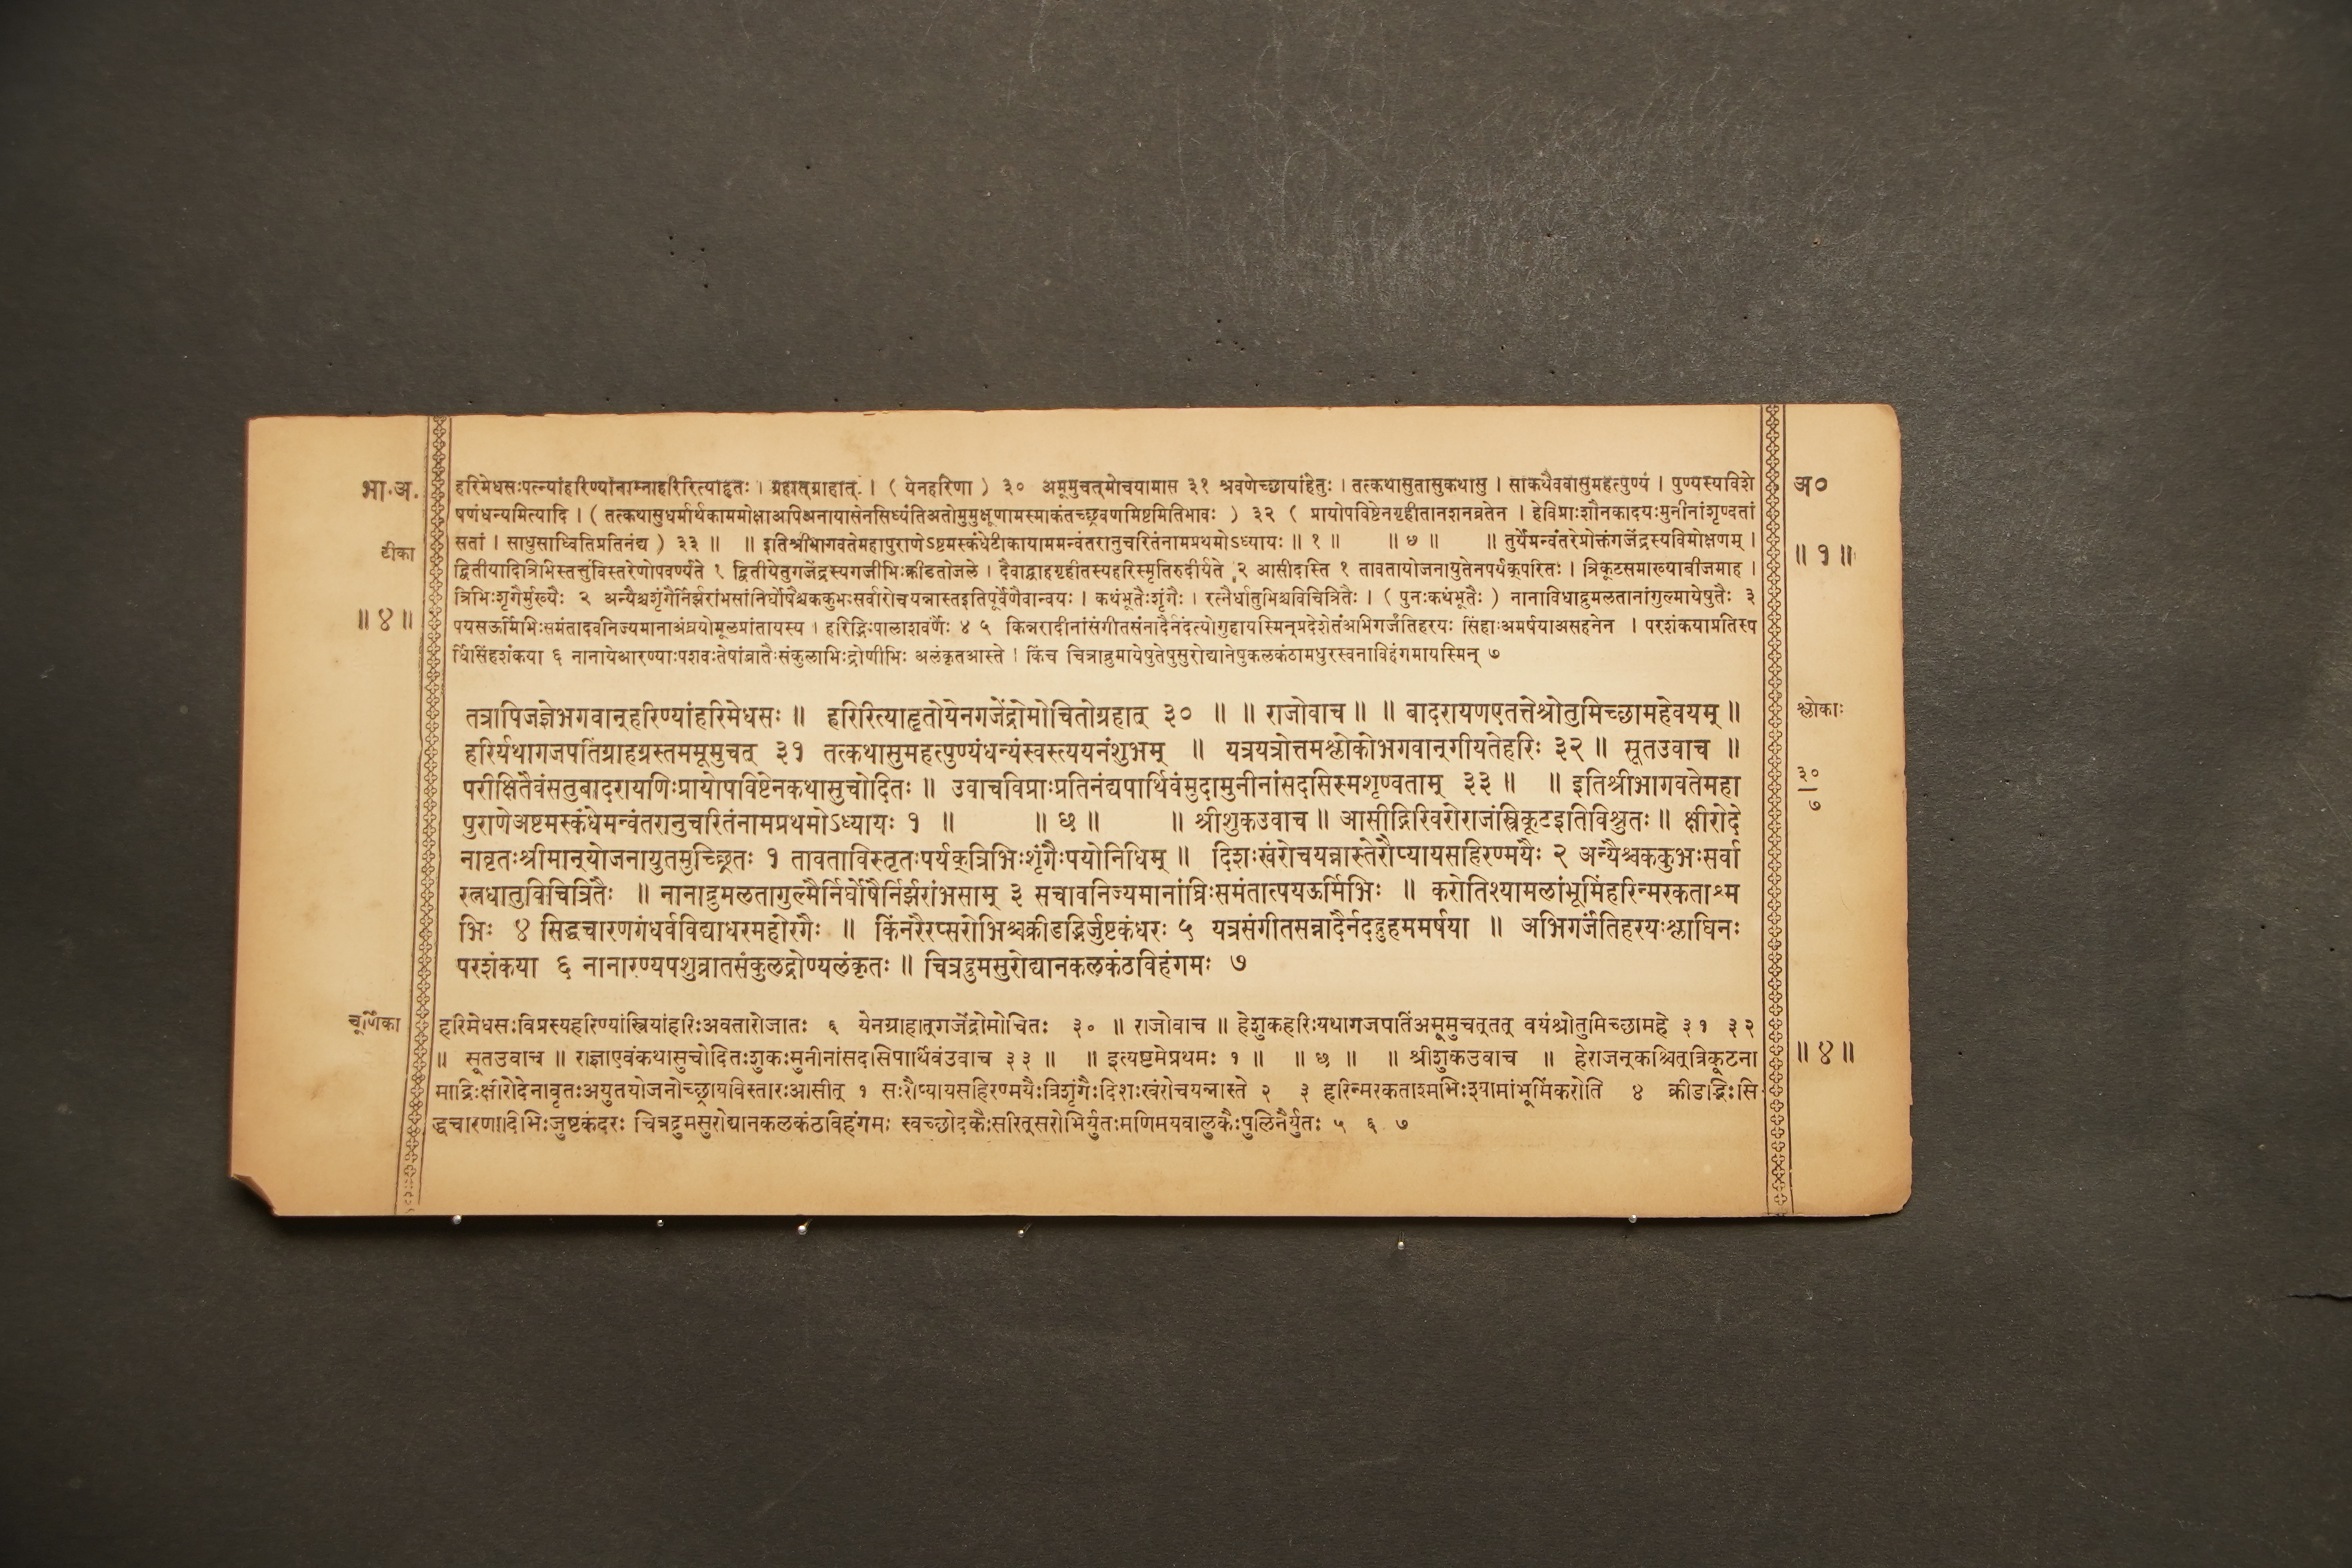 भा.अ.
टीका
॥ ४ ॥
हरिमेधसःपत्न्यांहरिण्यांनाम्नाहरिरित्याहृतः । ग्रहात्ग्राहात् । ( येनहरिणा ) ३० अमूमुचत्मोचयामास ३१ श्रवणेच्छायांहेतुः । तत्कथासुतासुकथासु । सांकथैववासुमहत्पुण्यं । पुण्यस्यविशे
षणंधन्यमित्यादि । ( तत्कथासुधर्मार्थकाममोक्षाअपिअनायासेनसिध्यंतिअतोमुमुक्षूणामस्माकंतच्छ्रवणमिष्टमितिभावः ) ३२ ( प्रायोपविष्टेनगृहीतानशनव्रतेन । हेविप्राःशौनकादयःमुनीनांशृण्वतां
सतां । साधुसाध्वितिप्रतिनंद्य ) ३३ ॥ ॥ इतिश्रीभागवतेमहापुराणेऽष्टमस्कंधेटीकायाममन्वंतरानुचरितंनामप्रथमोऽध्यायः ॥ १ ॥ ॥ ७ ॥ ॥ तुर्येमन्वंतरेप्रोक्तंगजेंद्रस्यविमोक्षणम् ।
द्वितीयादित्रिभिस्तत्तुविस्तरेणोपवर्ण्यते १ द्वितीयेतुगजेंद्रस्यगजीभिःक्रीडतोजले । दैवाद्ग्राहगृहीतस्यहरिस्मृतिरुदीर्यते २ आसीदस्ति १ तावतायोजनायुतेनपर्यक्परितः । त्रिकूटसमाख्याबीजमाह ।
त्रिभिःशृंगैर्मुख्यैः २ अन्यैश्चशृंगैर्निर्झरांभसांनिर्घोषैश्चककुभःसर्वारोचयन्नास्तइतिपूर्वेणैवान्वयः । कथंभूतैःशृंगैः । रत्नैर्धातुभिश्चविचित्रितैः । ( पुनःकथंभूतैः ) नानाविधाद्रुमलतानांगुल्मायेषुतैः ३
पयसऊर्मिभिःसमंतादवनिज्यमानाअंघ्रयोमूलप्रांतायस्य । हरिद्भिःपालाशवर्णैः ४ ५ किन्नरादीनांसंगीतसंनादैर्नदंत्योगुहायस्मिन्प्रदेशेतंअभिगर्जंतिहरयः सिंहाःअमर्षयाअसहनेन । परशंकयाप्रतिस्प
र्धिसिंहशंकया ६ नानायेआरण्याःपशवःतेषांव्रातैःसंकुलाभिःद्रोणीभिः अलंकृतआस्ते । किंच चित्राद्रुमायेषुतेषुसुरोद्यानेषुकलकंठामधुरस्वनाविहंगमायस्मिन् ७
तत्रापिजज्ञेभगवान्हरिण्यांहरिमेधसः ॥ हरिरित्याहृतोयेनगजेंद्रोमोचितोग्रहात् ३० ॥ ॥ राजोवाच ॥ ॥ बादरायणएतत्तेश्रोतुमिच्छामहेवयम् ॥
हरिर्यथागजपतिंग्राहग्रस्तममूमुचत् ३१ तत्कथासुमहत्पुण्यंधन्यंस्वस्त्ययनंशुभम् ॥ यत्रयत्रोत्तमश्लोकोभगवान्गीयतेहरिः ३२ ॥ सूतउवाच ॥
परीक्षितैवंसतुबादरायणिःप्रायोपविष्टेनकथासुचोदितः ॥ उवाचविप्राःप्रतिनंद्यपार्थिवंमुदामुनीनांसदसिस्मशृण्वताम् ३३ ॥ ॥ इतिश्रीभागवतेमहा
पुराणेअष्टमस्कंधेमन्वंतरानुचरितंनामप्रथमोऽध्यायः १ ॥ ॥ ७ ॥ ॥ श्रीशुकउवाच ॥ आसीद्गिरिवरोराजंस्त्रिकूटइतिविश्रुतः ॥ क्षीरोदे
नावृतःश्रीमान्योजनायुतमुच्छ्रितः १ तावताविस्तृतःपर्यक्त्रिभिःशृंगैःपयोनिधिम् ॥ दिशःखंरोचयन्नास्तेरौप्यायसहिरण्मयैः २ अन्यैश्चककुभःसर्वा
रत्नधातुविचित्रितैः ॥ नानाद्रुमलतागुल्मैर्निर्घोषैर्निर्झरांभसाम् ३ सचावनिज्यमानांघ्रिःसमंतात्पयऊर्मिभिः ॥ करोतिश्यामलांभूमिंहरिन्मरकताश्म
भिः ४ सिद्धचारणगंधर्वविद्याधरमहोरगैः ॥ किंनरैरप्सरोभिश्चक्रीडद्भिर्जुष्टकंधरः ५ यत्रसंगीतसन्नादैर्नदद्गुहममर्षया ॥ अभिगर्जंतिहरयःश्लाघिनः
परशंकया ६ नानारण्यपशुव्रातसंकुलद्रोण्यलंकृतः ॥ चित्रद्रुमसुरोद्यानकलकंठविहंगमः ७
चूर्णिका
हरिमेधसःविप्रस्यहरिण्यांस्त्रियांहरिःअवतारोजातः ६ येनग्राहात्गजेंद्रोमोचितः ३० ॥ राजोवाच ॥ हेशुकहरिःयथागजपतिंअमूमुचत्तत् वयंश्रोतुमिच्छामहे ३१ ३२
॥ सूतउवाच ॥ राज्ञाएवंकथासुचोदितःशुकःमुनीनांसदसिपार्थिवंउवाच ३३ ॥ ॥ इत्यष्टमेप्रथमः १ ॥ ॥ ७ ॥ ॥ श्रीशुकउवाच ॥ हेराजन्कश्चित्त्रिकूटना
माद्रिःक्षीरोदेनावृतःअयुतयोजनोच्छ्रायविस्तारःआसीत् १ सःरौप्यायसहिरण्मयैःत्रिशृंगैःदिशःखंरोचयन्नास्ते २ ३ हरिन्मरकताश्मभिःश्यामांभूमिंकरोति ४ क्रीडद्भिःसि
द्धचारणादिभिःजुष्टकंदरः चित्रद्रुमसुरोद्यानकलकंठविहंगमः स्वच्छोदकैःसरित्सरोभिर्युतःमणिमयवालुकैःपुलिनैर्युतः ५ ६ ७
अ०
॥ १ ॥
श्लोकाः
३०
७
॥ ४ ॥